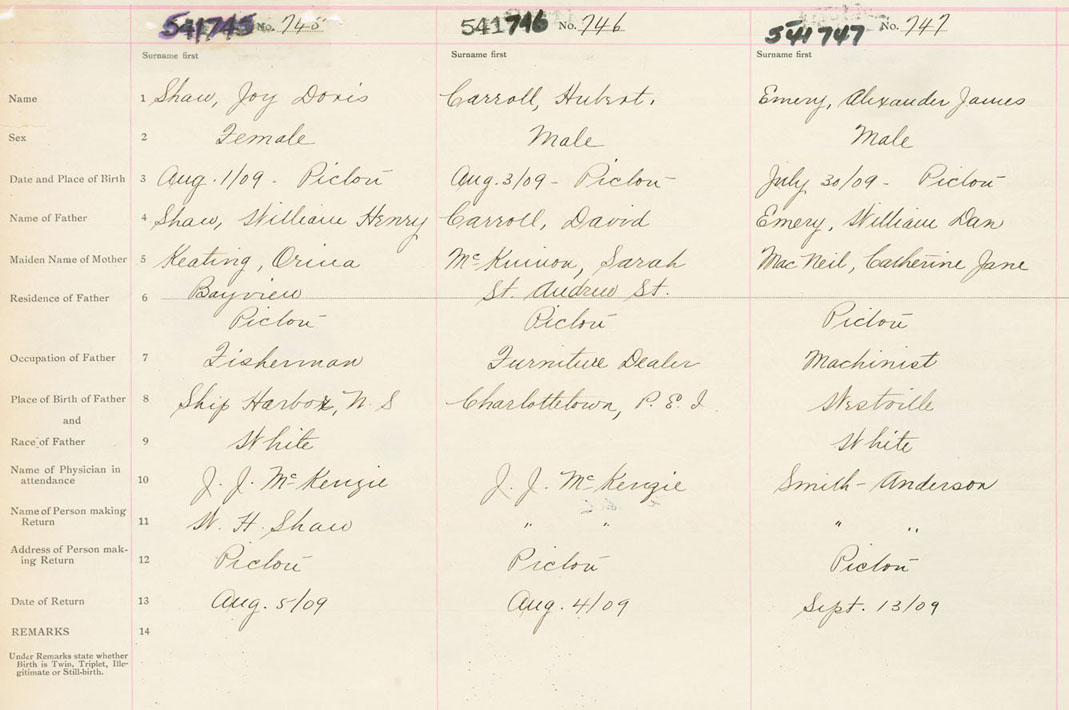 541745 No. 745 541746 No. 746 541747 No. 747
Surname first Surname first Surname first
Name 1 Shaw, Joy Doris Carroll, Hubert. Emery, Alexander James
Sex 2 Female Male Male
Date and Place of Birth 3 Aug. 1/09 - Pictou Aug. 3/09 - Pictou July 30/09 - Pictou
Name of Father 4 Shaw, William Henry Carroll, David Emery, William Dan
Maiden Name of Mother 5 Keating, Orina McKinnon, Sarah MacNeil, Catherine Jane
Residence of Father 6 Bayview St. Andrew St.
Pictou Pictou Pictou
Occupation of Father 7 Fisherman Furniture Dealer Machinist
Place of Birth of Father 8 Ship Harbor, N. S Charlottetown, P. E. I. Westville
and
Race of Father 9 White White
Name of Physician in
attendance 10 J. J. McKenzie J. J. McKenzie Smith - Anderson
Name of Person making
Return 11 W. H. Shaw " " " "
Address of Person mak-
ing Return 12 Pictou Pictou Pictou
Date of Return 13 Aug. 5/09 Aug. 4/09 Sept. 13/09
REMARKS 14
Under Remarks state whether
Birth is Twin, Triplet, Ille-
gitimate or Still-birth.